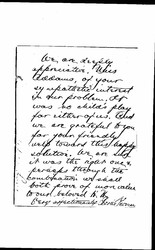 We are deeply
appreciative, Miss
Addams, of your
sympathetic interest
in our problem. It
was no child's play
for either of us. And
we are grateful to you
for your friendly
help toward this happy
solution. We are sure
it was the right one.
perhaps through the
combination we shall
both prove of more value
to our beloved
Very respectfully,